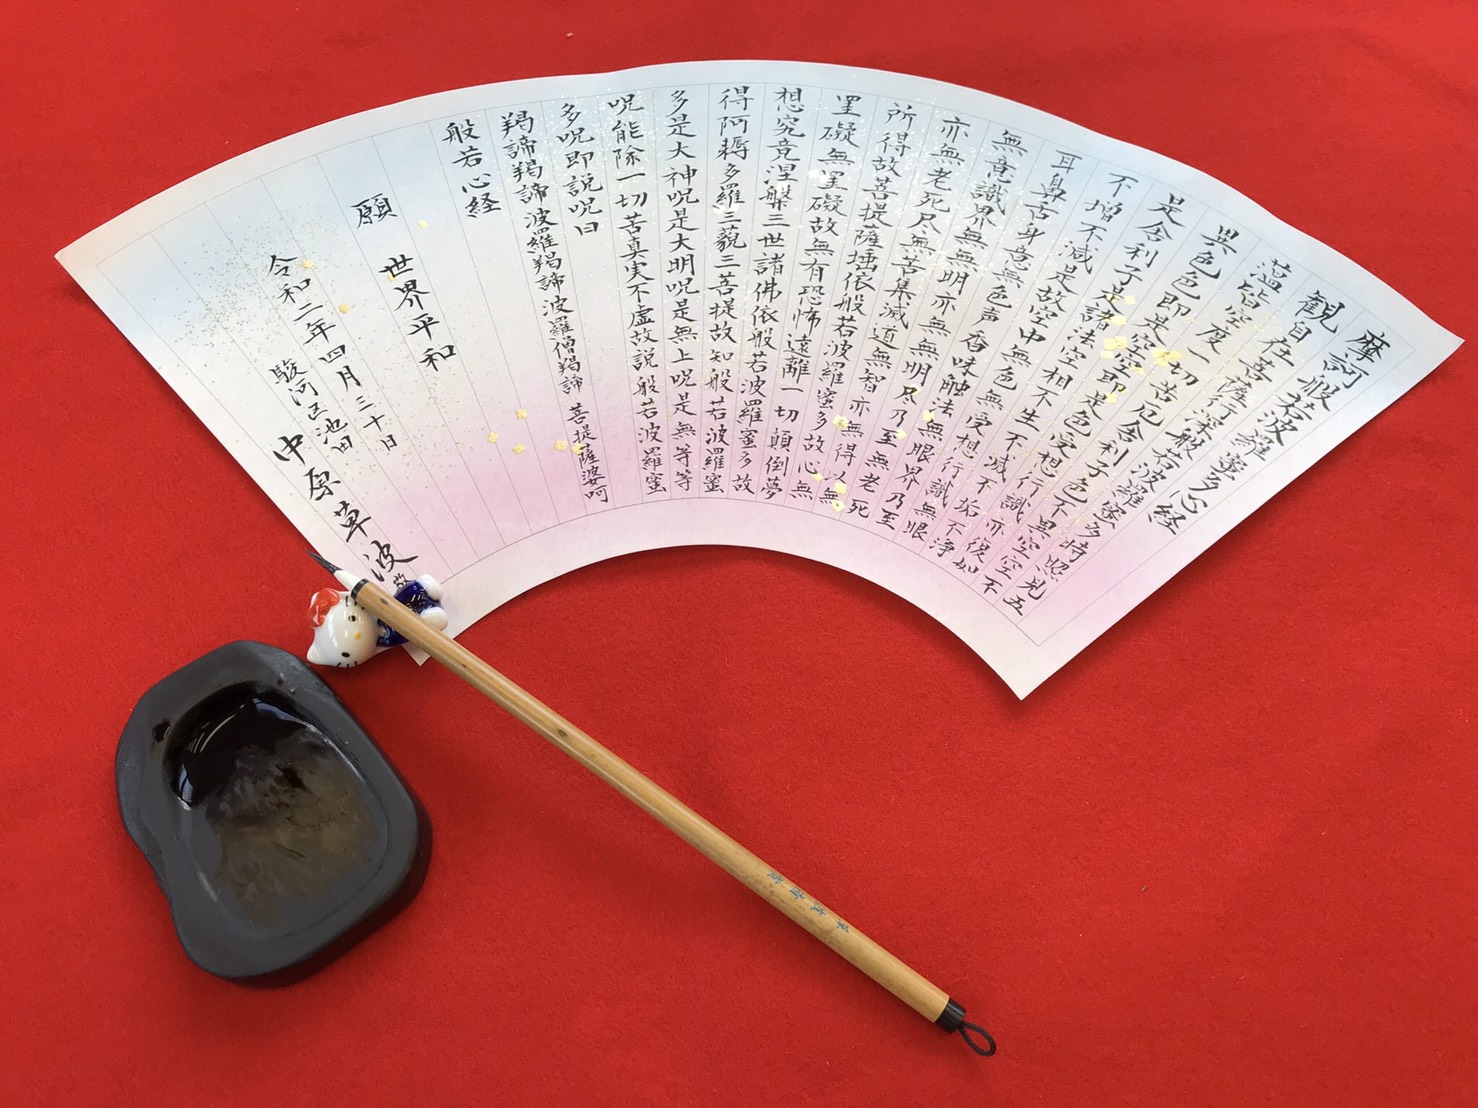 摩訶般若波羅蜜多心経
観自在菩薩行深般若波羅蜜多時照見五
蘊皆空度一切苦厄舎利子色不異空空不
異色色即是空空即是色受想行識亦復如
是舎利子是諸法空相不生不滅不垢不浄
不増不減是故空中無色無受想行識無眼
耳鼻舌身意無色声香味触法無眼界乃至
無意識界無無明亦無無明尽乃至無老死
亦無老死尽無苦集滅道無智亦無得以無
所得故菩提薩埵依般若波羅蜜多故心無
罣礙無罣礙故無有恐怖遠離一切顛倒夢
想究竟涅槃三世諸佛依般若波羅蜜多故
得阿耨多羅三藐三菩提故知般若波羅蜜
多是大神呪是大明呪是無上呪是無等等
呪能除一切苦真実不虚故説般若波羅蜜
多呪即説呪曰
羯諦羯諦波羅羯諦波羅僧羯諦 菩提薩婆呵
般若心経
願 世界平和
令和二年四月三十日
駿河区池田
中原草波